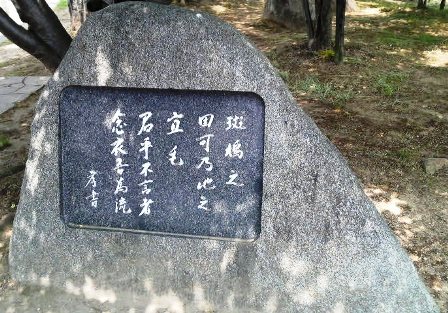 斑鳩之
因可乃池之
宜毛
君乎不言者
念衣吾為流